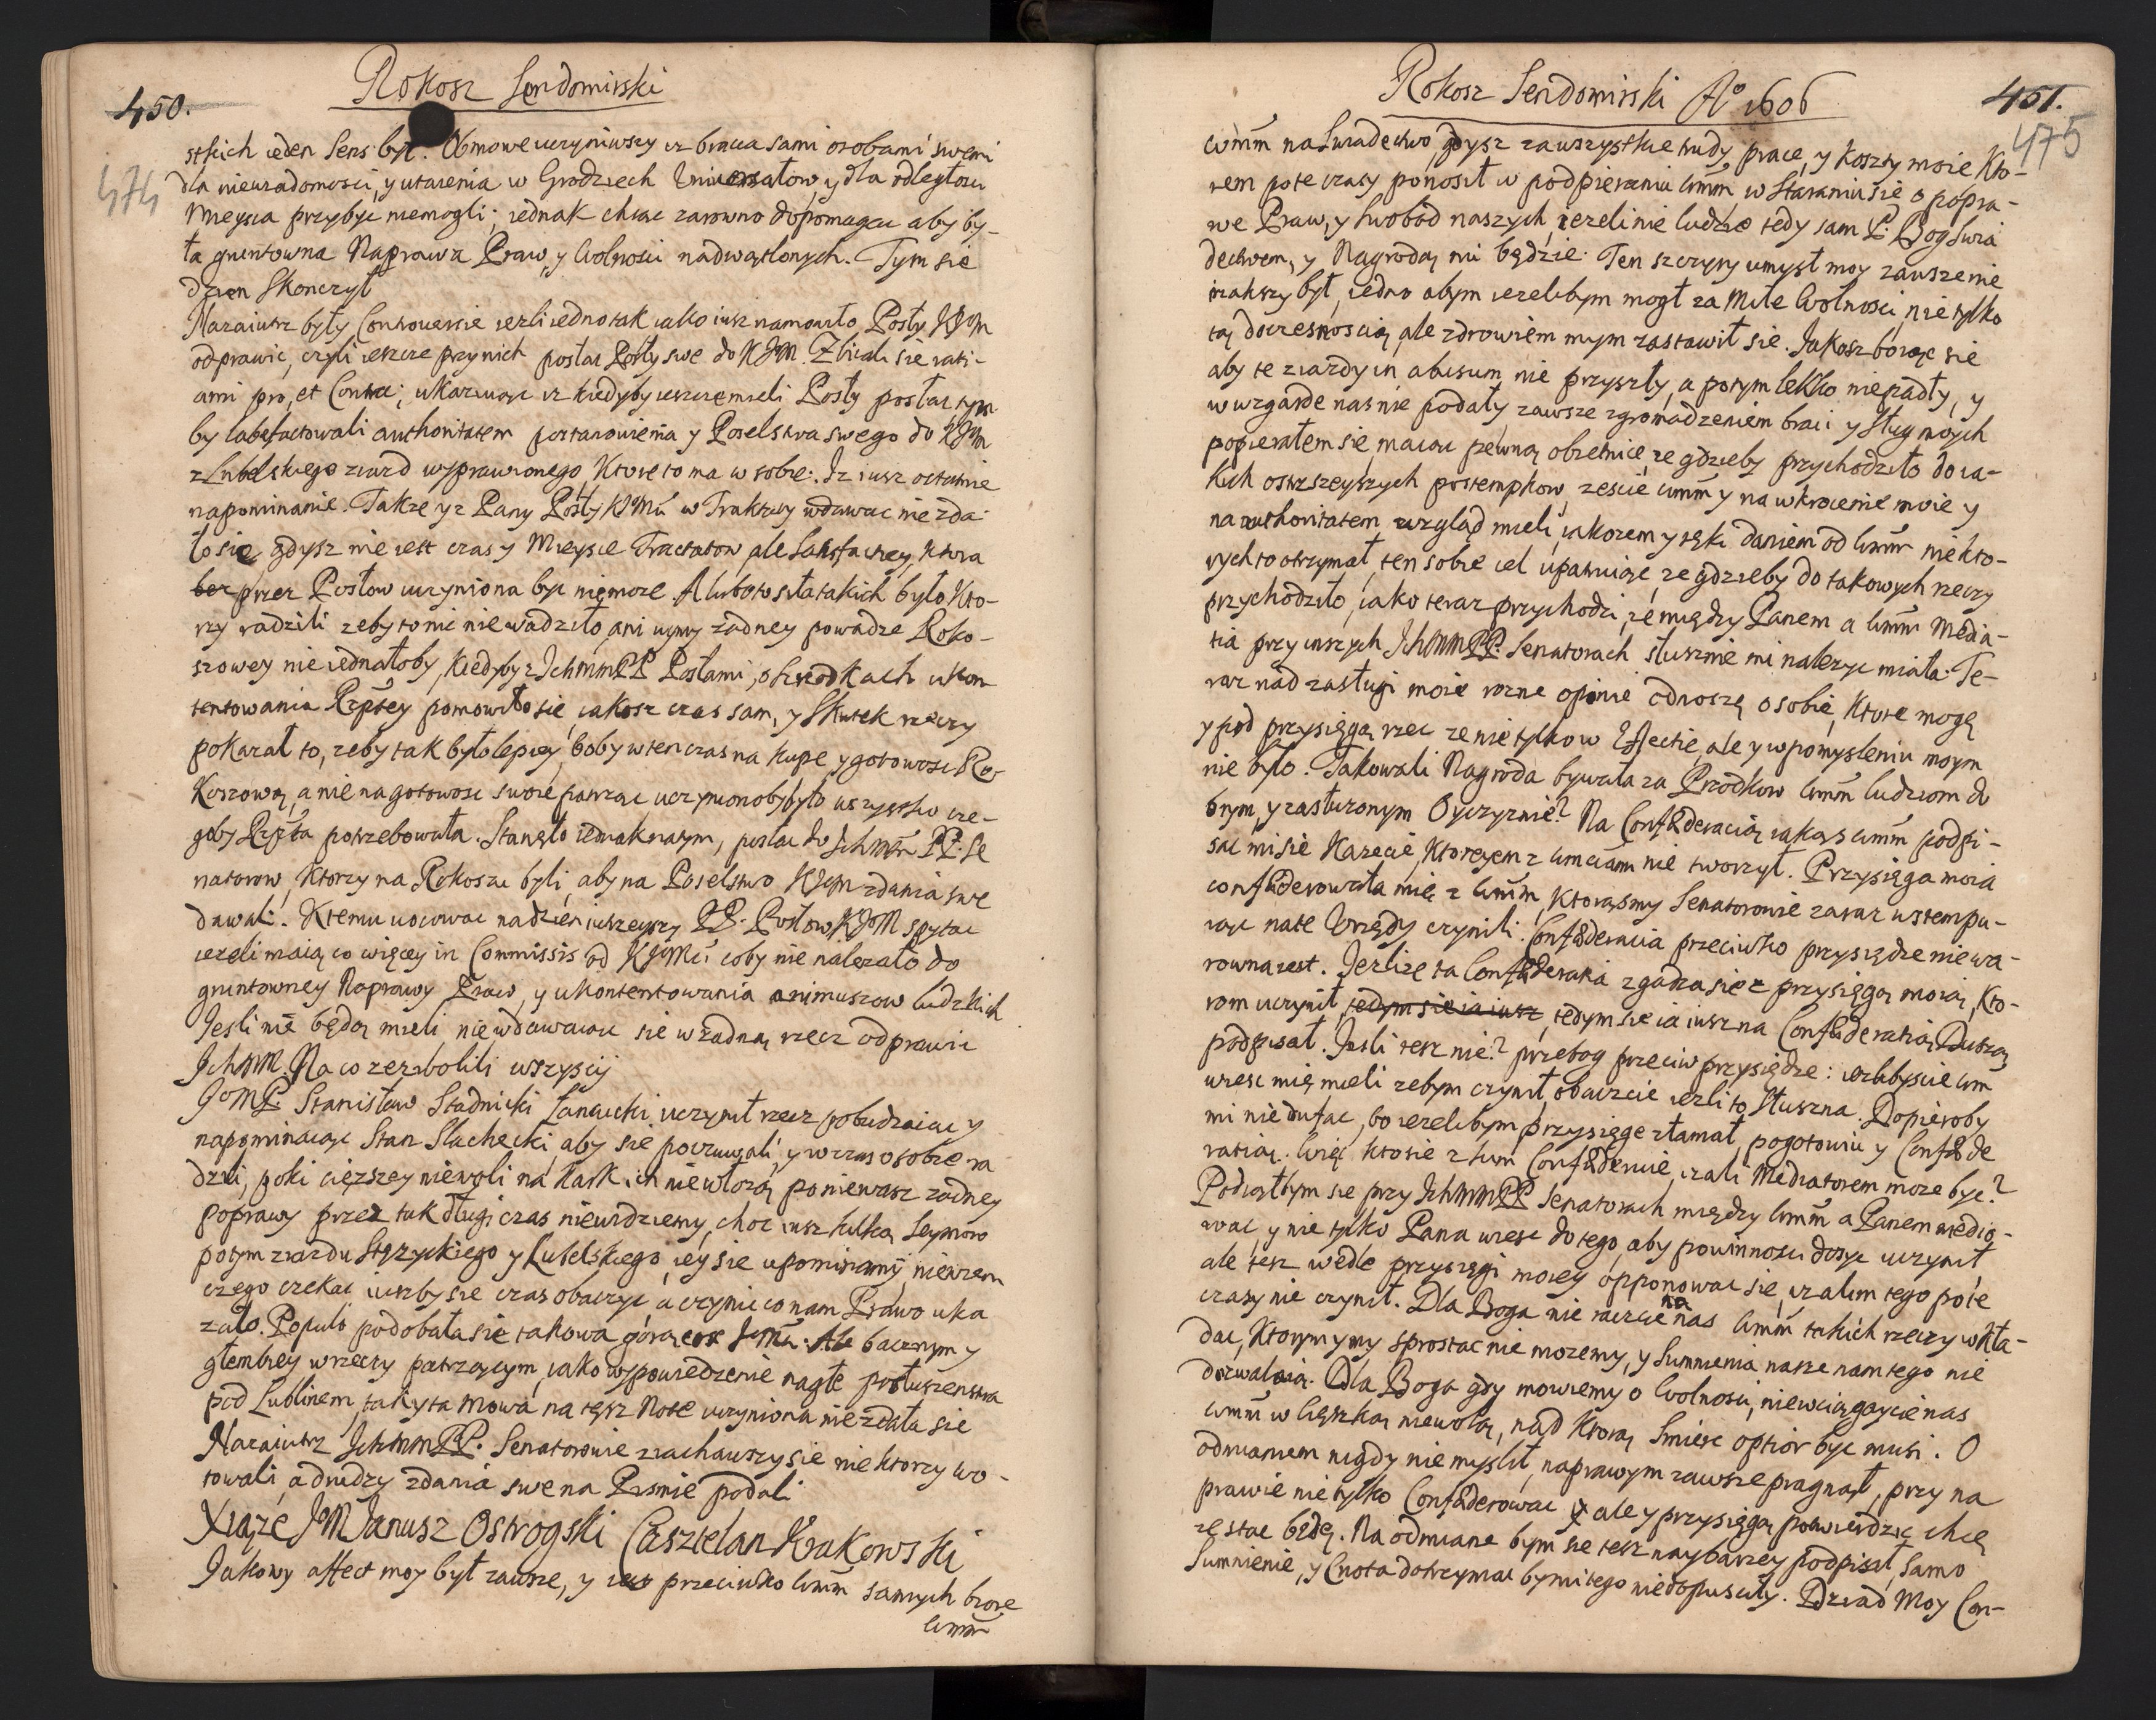 450.
Rokosz Sendomirski
474
stkich ieden Sens był. Obmowe uczyniwszy iz bracia sami osobami swemi
dla niewiadomosci, y utaienia w Grodziech Uniwersałow y dla odległosci
Mieysca przybyc niemogli; iednak chcąc zarowno dopomagac aby by-
ła gruntowna Naprawa Praw, y Wolnosci nadwątlonych. Tym sie
dzien skonczył
Nazaiutrz były Controuersie iezli iedno tak iako iusz namowiło, Posły KJM
odprawic, czyli ieszcze przy nich posłac Posły swe do KJM. Zbiali sie rati-
ami pro, et Contra; ukazuiąc iz kiedyby ieszcze mieli Posły posłac, tym
by labefactowali authoritatem postanowienia y Poselstwa swego do KJM
z Lubelskiego ziazd wyprawionego, Ktore to ma w sobie: Iz iusz ostatnie
napominanie. Takze y z Pany Posły KJMci w Traktaty wdawac nie zda-
ło sie gdysz nie iest czas y Mieysce Tractatow, ale Satisfactiey, Ktora
bez przez Posłow uczyniona byc niemoze. A lubo to siła takich było Kto-
rzy radzili zeby to nic nie wadziło, ani uymy zadney powadze Roko-
szowey nie iednałoby, kiedyby z Ichmm PP Posłami, o srzodkach ukon
tentowania Rzptey pomowiło sie, iakosz czas sam, y Skutek rzeczy
pokazał to, zeby tak było lepiey, boby w ten czas na kupe, y gotowosc Ro-
koszową, a nie na gotowosc swoie patrząc uczyniono by było wszystko cze-
goby Rzpta potrzebowała. Staneło iednak na tym, posłac do Ichmm PP. Se
natorow, Ktorzy na Rokoszu byli, aby na Poselstwo KJM zdania swe
dawali. Ktemu uocowac na dzien iutrzeyszy PP. Posłow KJM spytac
iezeli maią co więcey in Commissis od KJMci coby nie nalezało do
gruntowney Naprawy Praw, y ukontentowania animuszow ludzkich
Jesli nie będą mieli niewdawaiąc sie w zadną rzecz odprawic
Ichmm. Na co zezwolili wszyscy
JoMP. Stanisław Stadnicki Łancucki uczynił rzecz pobudzaiąc y
napominaiąc Stan Slachecki, aby sie poczuwali, y wczas o sobie ra
dzili, poki cięzszey niewoli na kark ich niewłozą, poniewasz zadney
poprawy przez tak długi czas niewidziemy, choc iusz kilką Seymow
potym ziazdu Stęzyckiego y Lubelskiego, iey sie upominamy, niewiem
czego czekac iuszby sie czas obaczyc a czynic co nam Prawo uka
zało. Populo podobała sie takowa gorącosc JeMci. Ale bacznym y
głembiey w rzeczy patrzącym, iako wypowiedzenie nagłe posłuszenstwa
pod Lublinem, tak y ta mowa na tęsz Note uczyniona nie zdała sie
Nazaiutrz Ichmm PP. Senatorowie ziachawszy sie nie ktorzy wo-
towali, a drudzy zdania swe na Pismie podali
Xiąze JM Janusz Ostrogski Casztelan Krakowski
Jakowy affect moy był zawsze, y iest przeciwko Wmm samych biore
Wmm
Rokosz Sendomirski Ao 1606
451.
475
Wmm na Swiadectwo, gdysz zawszystkie trudy, prace, y koszty moie Kto-
rem po te czasy ponosił w podpieraniu Wmm w staraniu sie o popra-
we Praw, y swobod naszych, iezeli nie ludzie tedy sam P: Bog swia
dectwem, y Nagrodą mi będzie. Ten szczyry umysł moy zawsze nie
inakszy był, iedno abym iezelibym mogł za Miłe Wolnosci, nie tylko
tą doczesnoscią, ale zdrowiem mym zastawił sie. Jakosz boiąc sie
aby te ziazdy in abusum nie przyszły, a potym lekko niepadły, y
w wzgarde nas nie podały zawsze zgromadzeniem braci y Sług moych
popierałem sie, maiąc pewną obietnicę, ze gdzieby przychodziło do ia-
kich ostrzszeyszych postempkow, zescie Wmm y na wkroczenie moie y
na authoritatem wzgląd mieli, iakozem y ręki daniem od Wmm niekto-
rych to otrzymał, ten sobie cel upatruiąc, ze gdzieby do takowych rzeczy
przychodziło, iako teraz przychodzi, ze między Panem a Wmm Media-
tia przy inszych Ichmm PP. Senatorach słusznie mi nalezyc miała. Te-
raz nad zasługi moie rozne opinie odnoszę o sobie, Ktore mogę
y pod przysięgą rzec ze nie tylko w Effectie, ale y w pomysleniu moym
nie było. Takowali Nagroda bywała za Przodkow Wmm ludziom do
brym, y zasłuzonym Oyczyznie? Na Confæderacią iakąs Wmm podpi-
sac mi sie kazecie, Ktoregem z Wmciami nie tworzył. Przysięga moia
confæderowała mię z Wmm, Ktorąsmy Senatorowie zaraz wstempu-
iąc na te Urzędy czynili. Confæderacia przeciwko przysiędze niewa-
rowna iest. Jezlize ta Confæderatia zgadza sie z przysięgą moią, Kto-
rom uczynił, tedym sie ia iusz, tedym sie ia iusz na Confæderatią Duszą
podpisał. Jesli tesz nie? przebog przeciw przysiędze: iezlibyscie Wm
wiesc mię mieli zebym czynił, obaczcie iezli to słuszna. Dopieroby
mi nie dufac, bo iezelibym przysięge złamał, pogotowiu y Confæde
ratią. Więc kto sie z kim Confæderuie, izali Mediatorem moze byc?
Podiąłbym sie przy Ichmm PP Senatorach między Wmm a Panem medio-
wac, y nie tylko Pana wiesc do tego, aby powinnosci dosyc uczynił
ale tesz wedle przysięgi moiey opponowac sie, izalim tego po te
czasy nie czynił. Dla Boga nie raczcie na nas Wmm takich rzeczy wkła-
dac, Ktorym y my sprostac nie mozemy, y Sumnienia nasze nam tego nie
dozwalaią. Dla Boga gdy mowiemy o Wolnosci, niewciągaycie nas
Wmm w cięszką niewolą, nad ktorą Smierc optior byc musi. O
odmianiem nigdy nie myslił, naprawym zawsze pragnął, przy na
prawie nie tylko Confæderowac y ale y przysięgą potwierdzic chcę
ze stac będę. Na odmiane bym sie tesz naybarziey podpisał, samo
Sumnienie, y Cnota dotrzymac bymi tego niedopusciły. Dziad Moy Con-